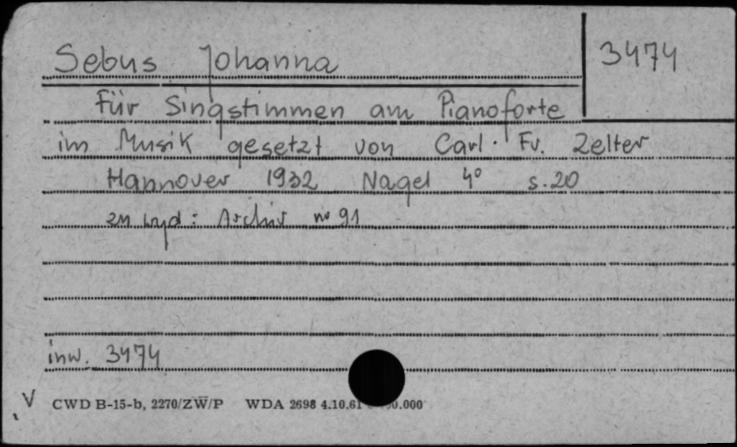 Sebus Johanna
3474
Für Singstimmen am Pianoforte
im Musik gesetzt von Carl. Fr. Zelter
Hannover 1932 Nagel 4° s. 20
Archiv nr 91
inw. 3474
V CWD B-15-b, 2270/ZW/P WDA 2698 4.10.61 0.000